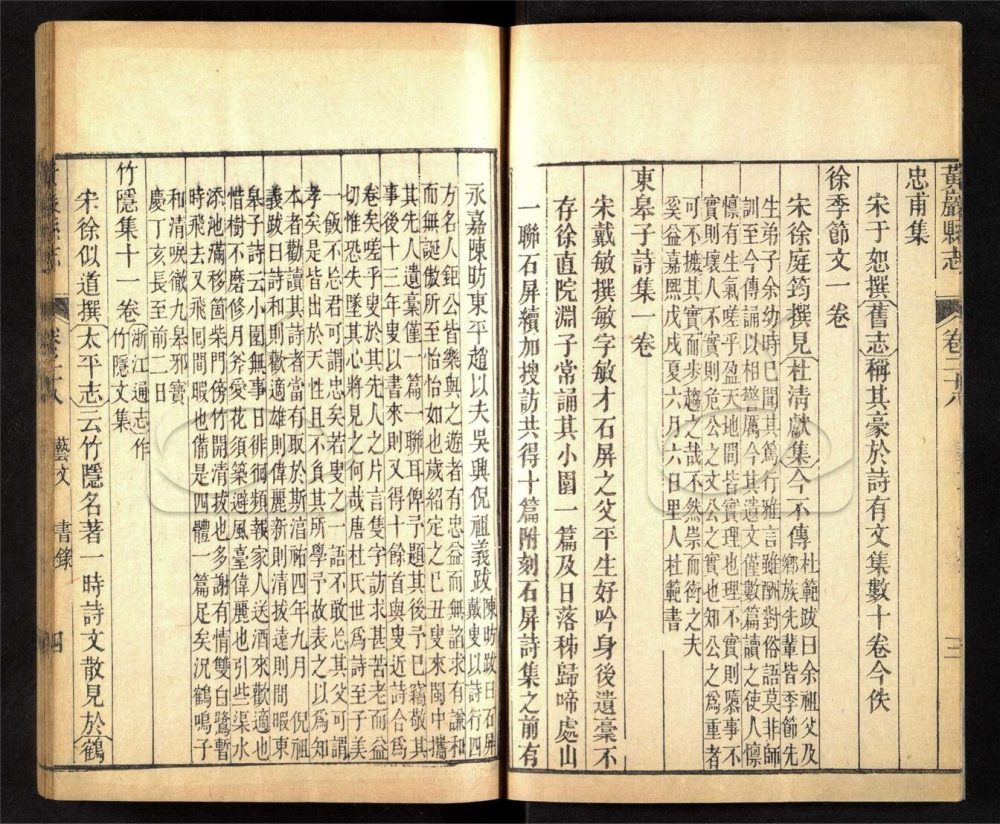 黃巖縣志
卷二十八
三
忠甫集
宋于恕撰舊志稱其豪於詩有文集數十卷今佚
徐季節文一卷
宋徐庭筠撰見杜清獻集今不傳
杜範跋曰余祖父及
鄉族先輩皆季節先
生弟子余幼時已聞其篤行雅言雖酬對俗語莫非師
訓至今傳誦以相警厲今其遺文僅數篇讀之使人懍
懍有生氣嗟乎盈天地間皆實理也理不實則隳事不
實則壞人不實則危公之文公之實也知公之爲重者
可不摭其實而步趨之哉不然崇而衒之夫
奚益嘉熙戊戌夏六月六日里人杜範書
東皋子詩集一卷
宋戴敏撰敏字敏才石屏之父平生好吟身後遺藁不
存徐直院淵子常誦其小園一篇及日落秭歸啼處山
一聯石屏續加搜訪共得十篇附刻石屏詩集之前有
永嘉陳昉東平趙以夫吳興倪祖義跋
陳昉跋曰石屏
戴叟以詩行四
方名人鉅公皆樂與之遊者有忠益而無諂求有謙和
而無誕傲所至怡怡如也歲紹定之己丑叟來閩中攜
其先人遺藁僅一篇一聯耳俾予題其後予已竊敬其
事後十三年叟以書來則又得十餘首與叟近詩合爲
卷矣嗟乎叟於其先人之片言隻字訪求甚苦老而益
切惟恐失墜其心將見之何哉唐杜氏世爲詩至子美
一飯不忘君可謂忠矣若叟之一語不敢忘其父可謂
孝矣是皆出於天性且不負其所學予故表之以爲知
本者勸讀其詩者當有取於斯淯祐四年九月　倪祖
義跋曰詩和則歡適雄則偉麗新則清拔遠則閒暇東
皋子詩云小園無事日徘徊頻報家人送酒來歡適也
惜樹不磨修月斧愛花須築避風臺偉麗也引些渠水
添池滿移箇柴門傍竹開清拔也多謝有情雙白鷺暫
時飛去又飛回閒暇也備是四體一篇足矣況鶴鳴子
和清唳徹九皋邪寶
慶丁亥長至前二日
竹隱集十一卷
浙江通志作
竹隱文集
宋徐似道撰太平志云竹隱名著一時詩文散見於鶴
卷二十八
藝文　書錄
四